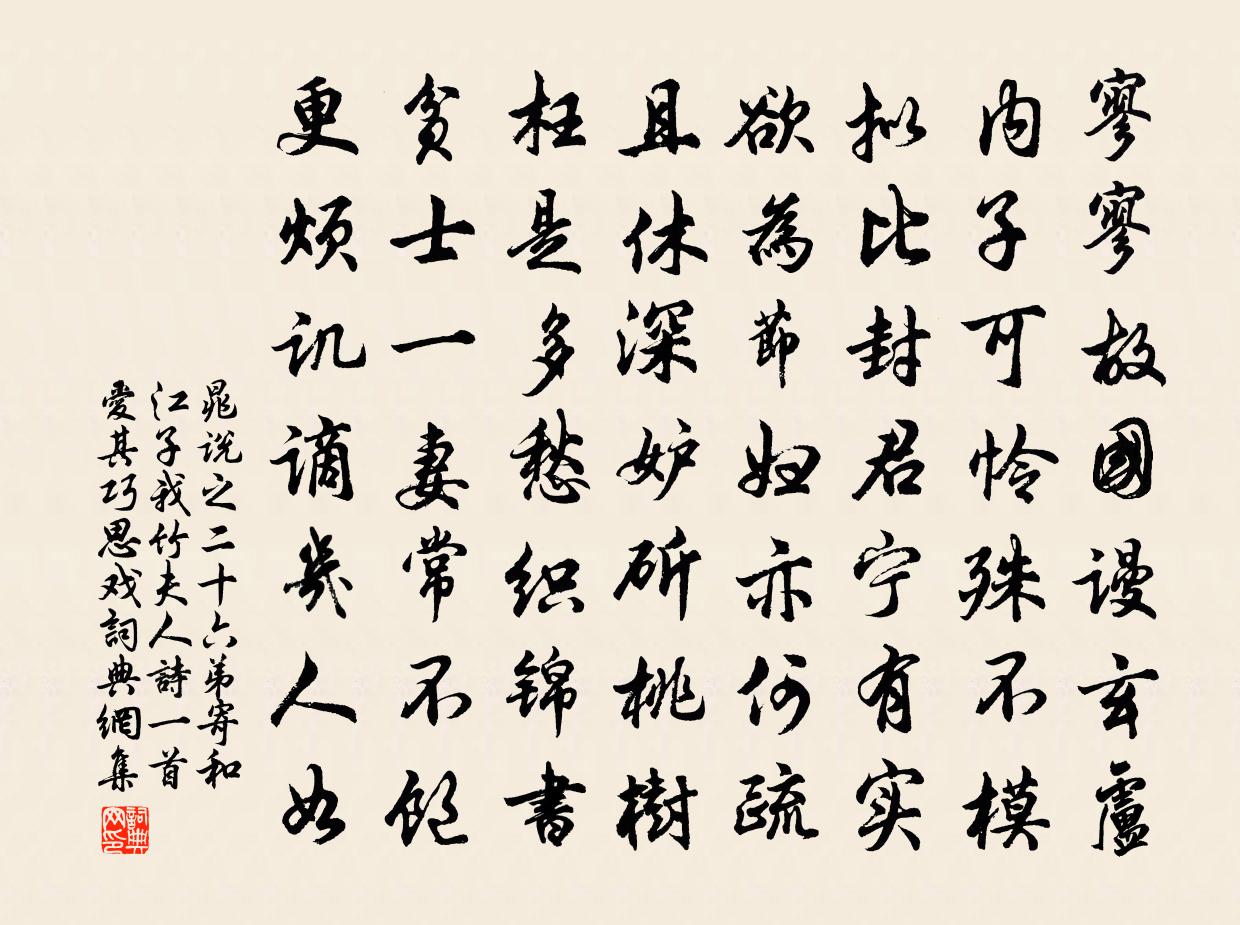 寥寥故國謾玄盧
内子可怜殊不模
拟比封君宁有实
欲為節妇亦何疏
且休深妒斫桃樹
枉是多愁织锦書
贫士一妻常不饱
更烦讥谪幾人如
晁说之二十六弟寄和
江子我竹夫人詩一首
愛其巧思戏詞典網集